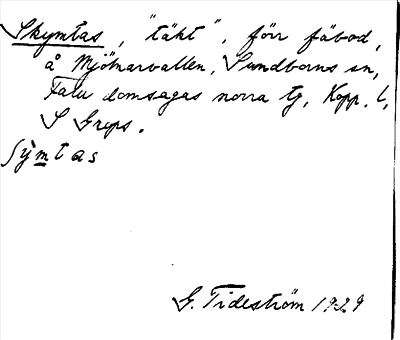 Skymtas, "täkt", förr fäbod,
å Mjölnarvallen, Sundborns sn,
Falu domsagas norra tg, Kopp. l,
S Greps.
Sỳmtas
G. Tideström 1929